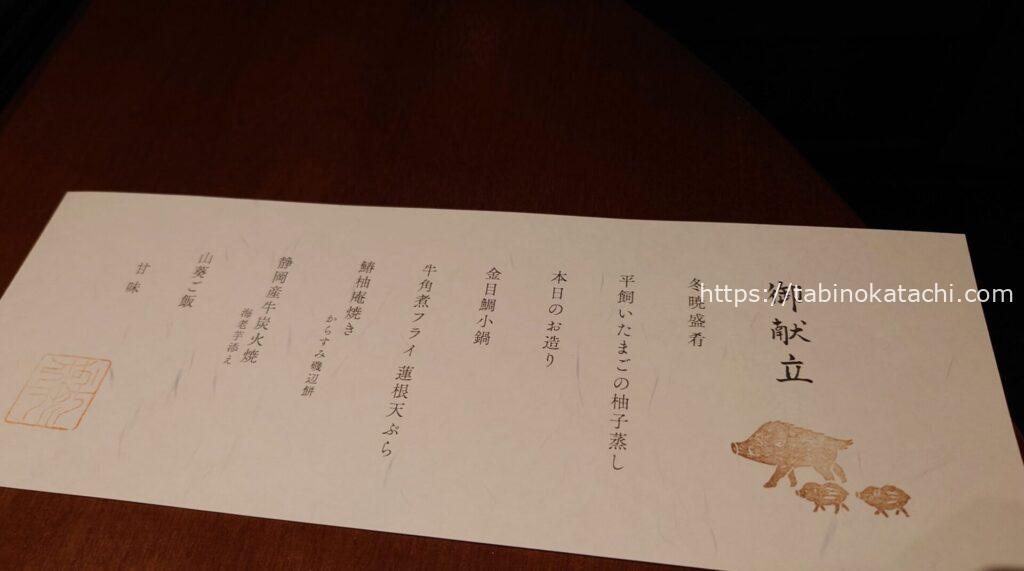 御献立
冬暁盛肴
平飼いたまごの柚子蒸し
本日のお造り
金目鯛小鍋
牛角煮フライ 蓮根天ぷら
鰆柚庵焼き
からすみ磯辺餅
静岡産牛炭火焼
海老芋添え
山葵ご飯
甘味
https://tabinokatachi.com